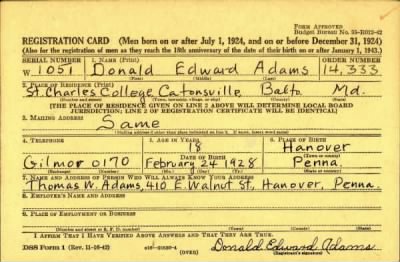 FORM APPROVED
Budget Bureau No. 33-R012-42
REGISTRATION CARD (Men born on or after July 1, 1924, and on or before December 31, 1924)
(Also for the registration of men as they reach the 18th anniversary of the date of their birth on or after January 1, 1943.)
SERIAL NUMBER 1. NAME (Print) ORDER NUMBER
W 1051 Donald Edward Adams 14,333
(First) (Middle) (Last)
2. PLACE OF RESIDENCE (Print)
St. Charles College Catonsville Balto Md.
(Number and street) (Town, township, village, or city) (County) (State)
[THE PLACE OF RESIDENCE GIVEN ON LINE 2 ABOVE WILL DETERMINE LOCAL BOARD
JURISDICTION; LINE 2 OF REGISTRATION CERTIFICATE WILL BE IDENTICAL]
3. MAILING ADDRESS
Same
[Mailing address if other than place indicated on line 2. If same, insert word same]
4. TELEPHONE 5. AGE IN YEARS 6. PLACE OF BIRTH
18 Hanover
DATE OF BIRTH (Town or county)
Gilmor 0170 February 24 1928 Penna.
(Exchange) (Number) (Mo.) (Day) (Yr.) (State or country)
7. NAME AND ADDRESS OF PERSON WHO WILL ALWAYS KNOW YOUR ADDRESS
Thomas W. Adams, 410 E. Walnut St., Hanover, Penna.
8. EMPLOYER'S NAME AND ADDRESS
9. PLACE OF EMPLOYMENT OR BUSINESS
(Number and street or R. F. D. number) (Town) (County) (State)
I AFFIRM THAT I HAVE VERIFIED ABOVE ANSWERS AND THAT THEY ARE TRUE.
DSS Form 1 (Rev. 11-16-42) (OVER) Donald Edward Adams
(Registrant's signature)